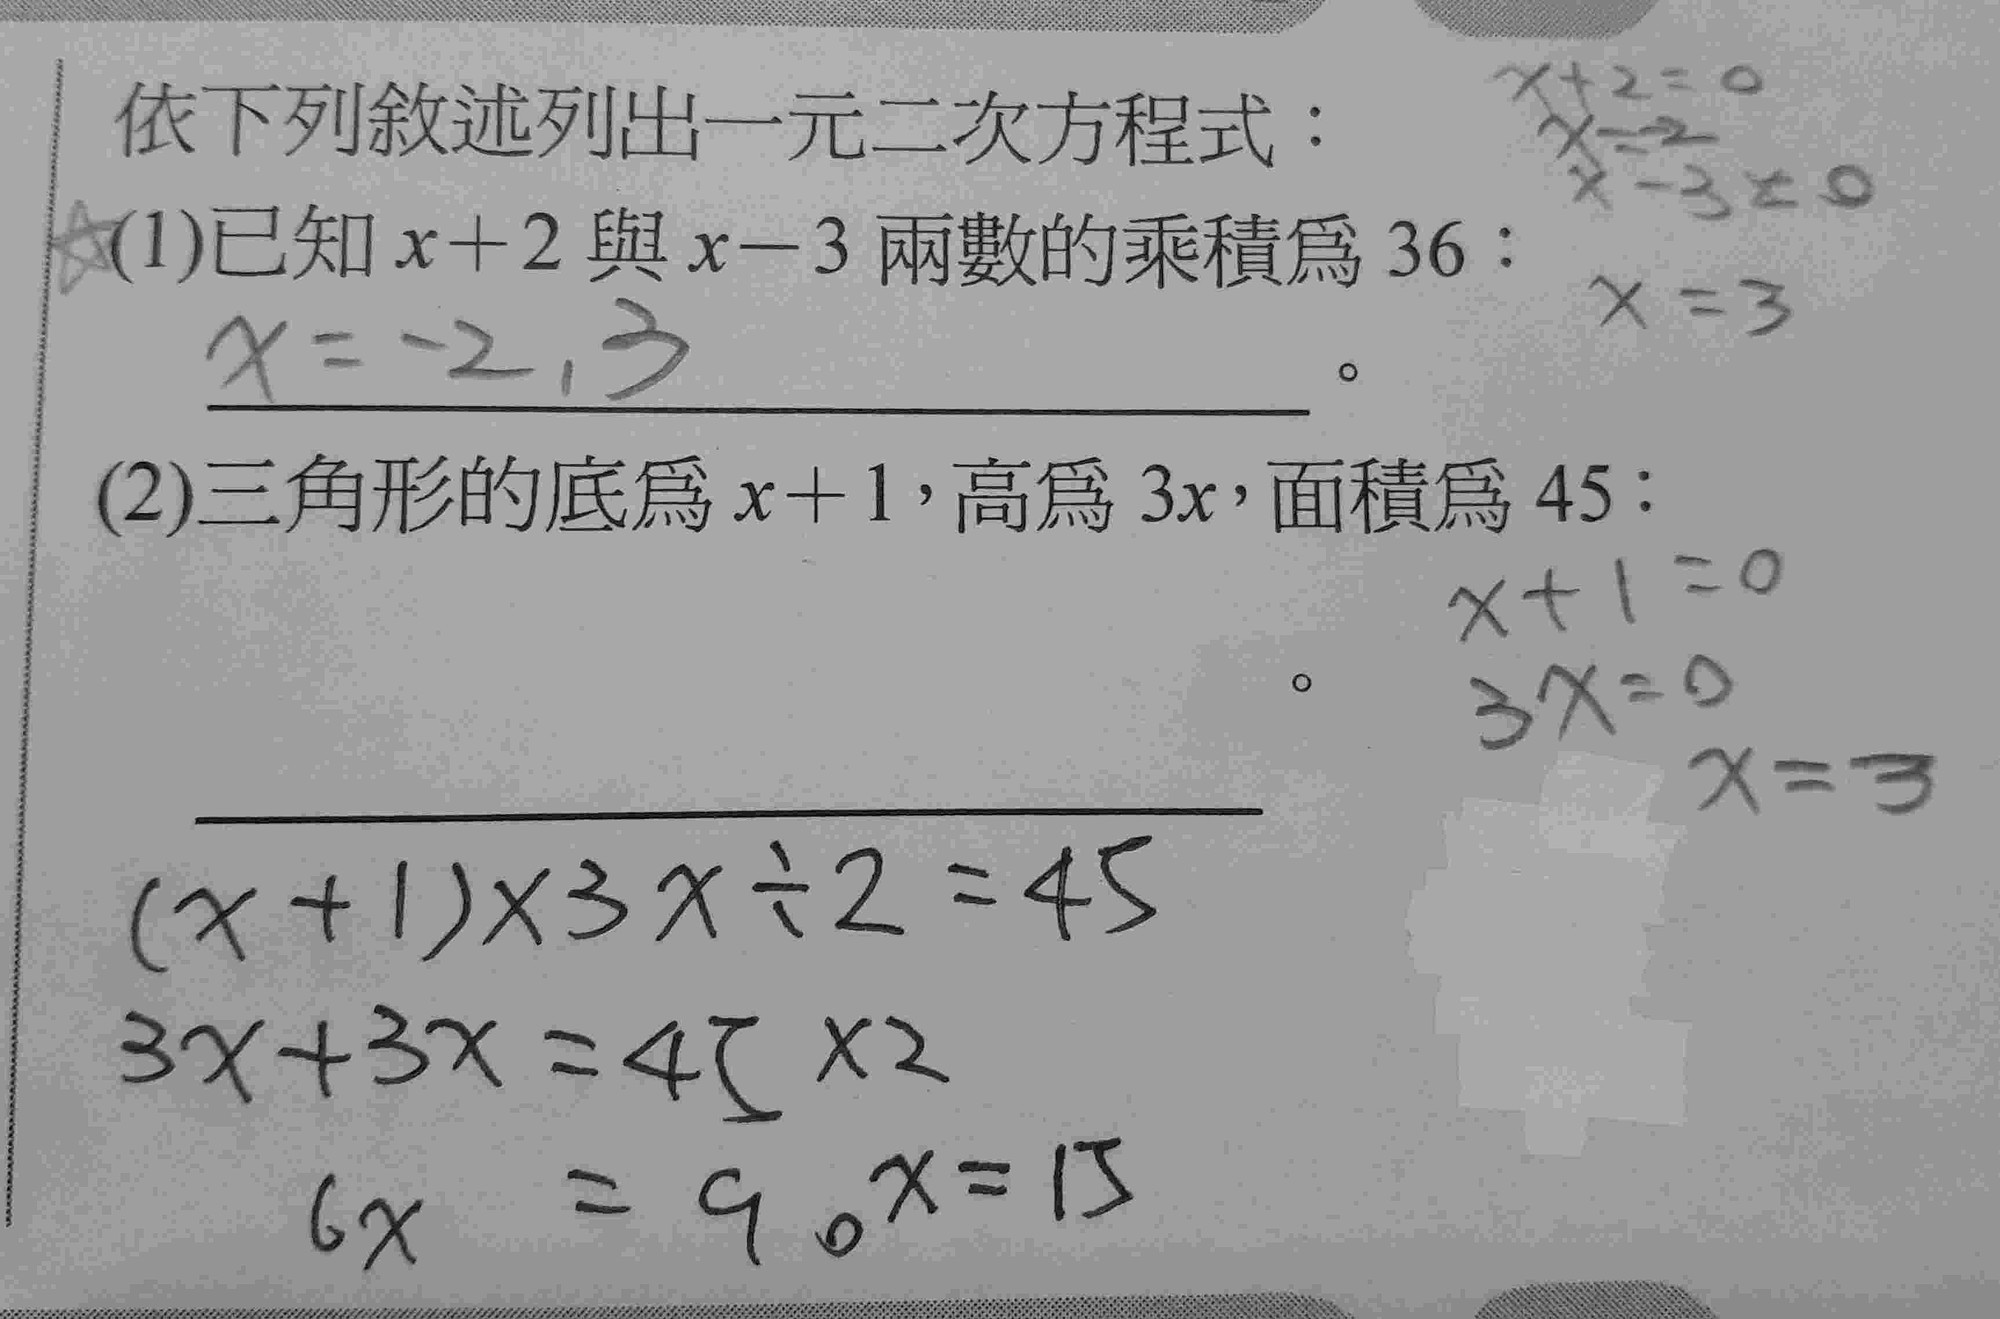 依下列敘述列出一元二次方程式：
x+2=0
x=-2
x-3=0
x=3
☆(1)已知 x＋2 與 x－3 兩數的乘積爲 36：
x=-2,3。
(2)三角形的底爲 x＋1，高爲 3x，面積爲 45：
。
x+1=0
3x=0
x=3
(x+1)×3x÷2=45
3x+3x=45×2
6x=90 x=15